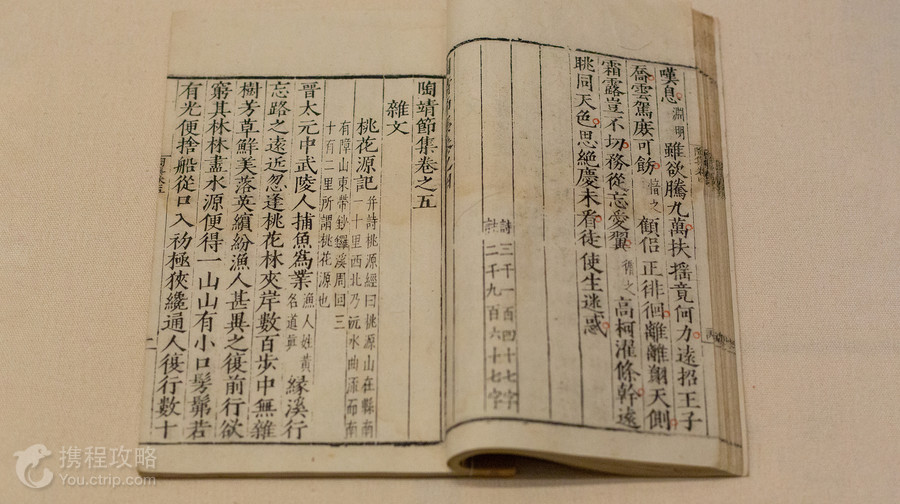 嘆息淵明雖欲騰九萬扶搖竟何力遠招王子
喬雲駕庶可飭愔之顧侶正徘徊離離翔天側
霜露豈不切務從忘愛翼循之高柯濯條幹遠
眺同天色思絶慶未看徒使生迷惑
詩三千一百四十七字
註二千九百六十七字
陶靖節集卷之五
雜文
桃花源記并詩桃源經曰桃源山在縣南
一十里西北乃沅水曲流而南
有障山東帶鈔鑼溪周回三
十有二里所謂桃花源也
晉太元中武陵人捕魚爲業漁人姓黃名道真緣溪行
忘路之遠近忽逢桃花林夾岸數百步中無雜
樹芳草鮮美落英繽紛漁人甚異之復前行欲
窮其林林盡水源便得一山山有小口髣髴若
有光便捨船從口入初極狹纔通人復行數十
携程攻略
You.ctrip.com